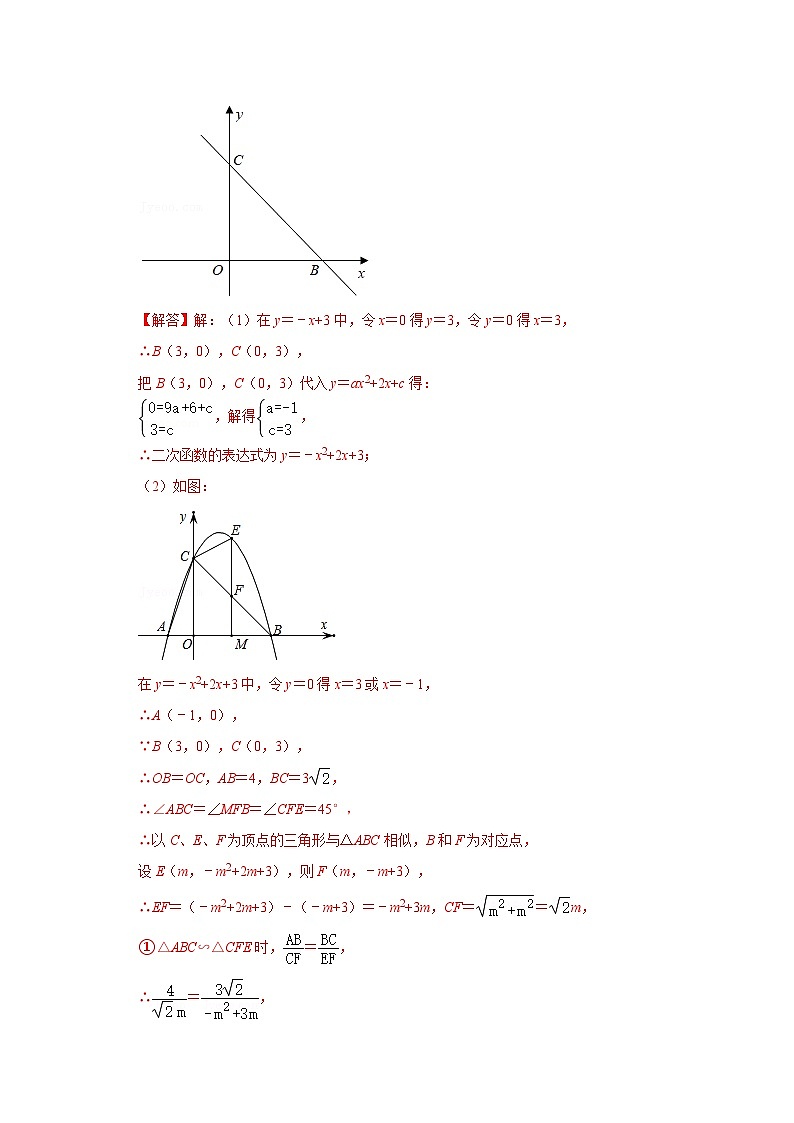 y
C
O
B
x
【解答】解：（1）在y＝﹣x+3中，令x＝0得y＝3，令y＝0得x＝3，
∴B（3，0），C（0，3），
把B（3，0），C（0，3）代入y＝ax²+2x+c得：
{0=9a+6+c 3=c ，解得{a=-1 c=3 ，
∴二次函数的表达式为y＝﹣x²+2x+3；
（2）如图：
y
E
C
F
A
O
M
B
x
在y＝﹣x²+2x+3中，令y＝0得x＝3或x＝﹣1，
∴A（﹣1，0），
∵B（3，0），C（0，3），
∴OB＝OC，AB＝4，BC＝3√2，
∴∠ABC＝∠MFB＝∠CFE＝45°，
∴以C、E、F为顶点的三角形与△ABC相似，B和F为对应点，
设E（m，﹣m²+2m+3），则F（m，﹣m+3），
∴EF＝（﹣m²+2m+3）﹣（﹣m+3）＝﹣m²+3m，CF＝√(m²+m²)＝√2m，
①△ABC∽△CFE时，AB/CF＝BC/EF，
∴4/(√2m)＝3√2/(-m²+3m)，